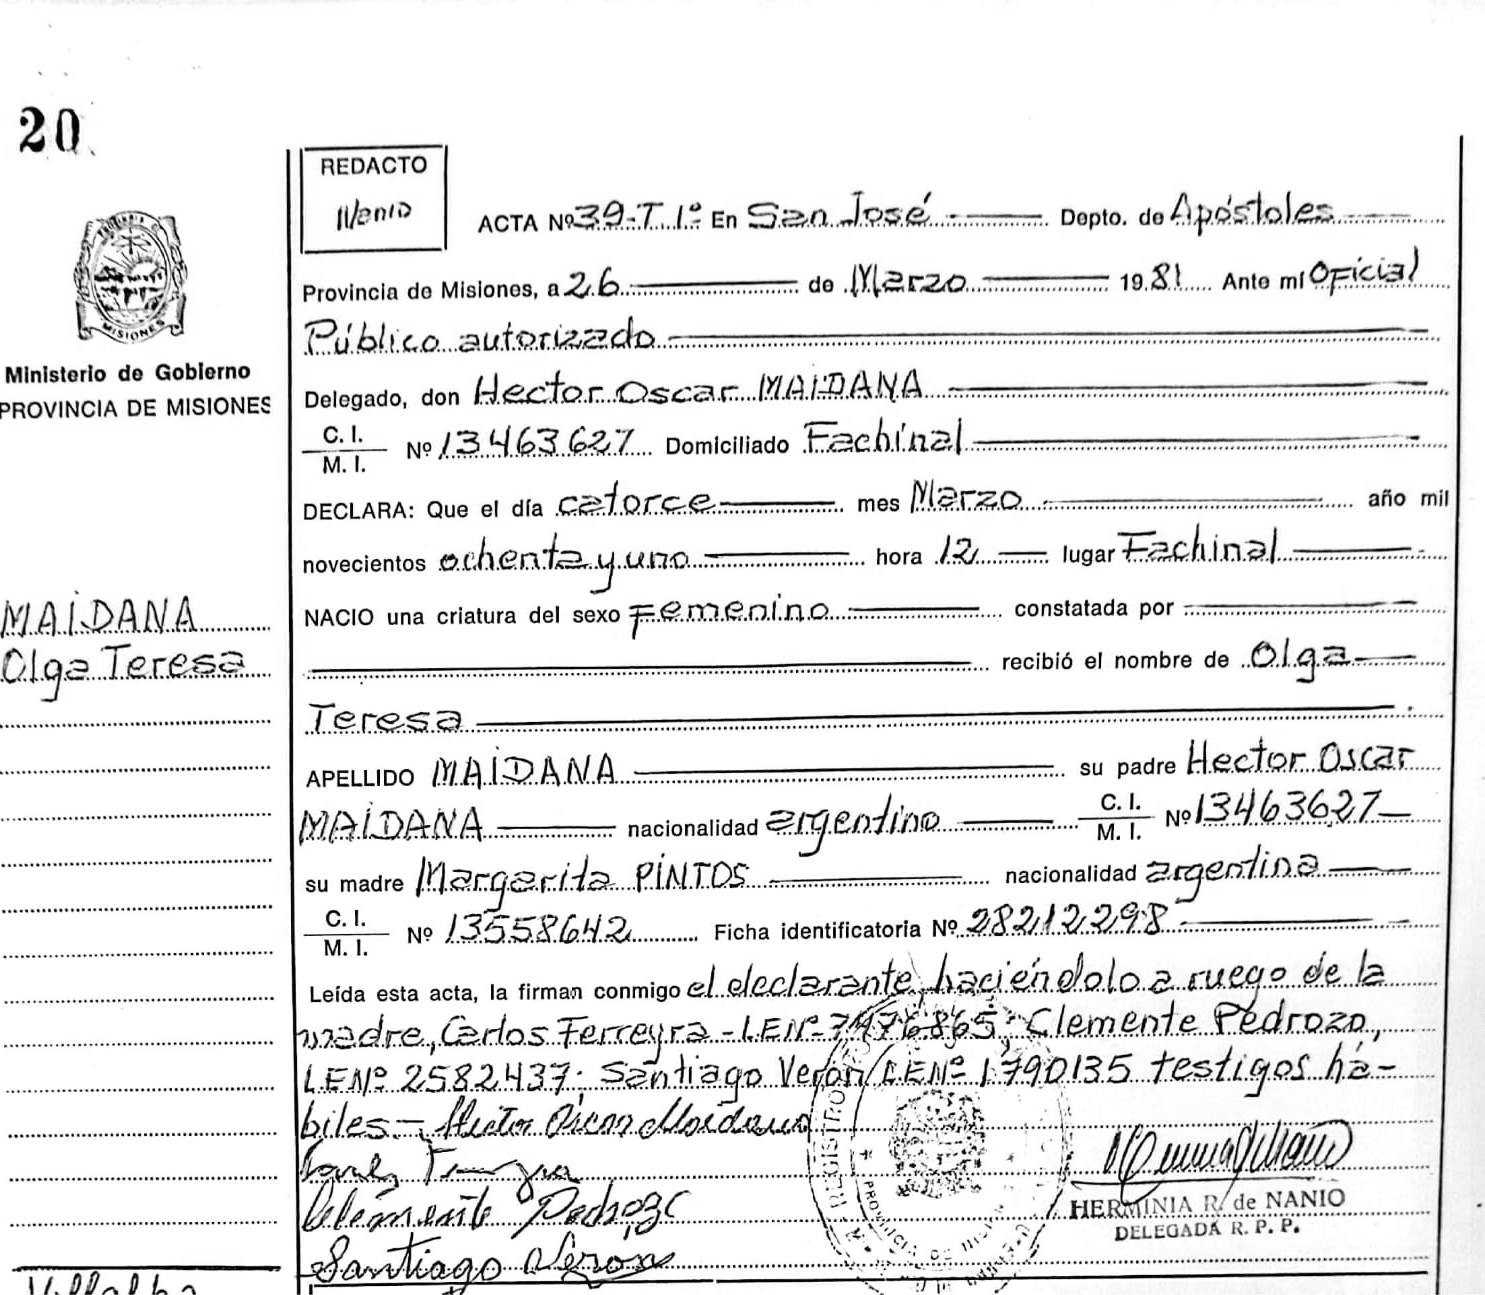 20
REDACTO
ACTA Nº 39-T 1º En San José Depto. de Apóstoles
Provincia de Misiones, a 26 de Marzo 1981 Ante mí Oficial
Público autorizado
MISIONES
Ministerio de Gobierno
PROVINCIA DE MISIONES
Delegado, don Hector Oscar MAIDANA
C. I.
M. I. Nº 13463627 Domiciliado Fachinal
DECLARA: Que el día catorce mes Marzo año mil
novecientos ochenta y uno hora 12 lugar Fachinal
NACIO una criatura del sexo Femenino constatada por
MAIDANA
Olga Teresa
recibió el nombre de Olga
Teresa
APELLIDO MAIDANA su padre Hector Oscar
MAIDANA nacionalidad argentino C. I. M. I. Nº 13463627
su madre Margarita PINTOS nacionalidad argentina
C. I.
M. I. Nº 13558642 Ficha identificatoria Nº 28212298
Leída esta acta, la firman conmigo el declarante, haciéndolo a ruego de la
madre, Carlos Ferreyra - LENº 7476865; Clemente Pedrozo,
LENº 2582437; Santiago Verón LENº 1.790135 testigos há-
biles - Hector Oscar Maidana
Clemente Pedrozo
Santiago Veron
REGISTRO
PROVINCIA DE MISIONES
HERMINIA R. de NANIO
DELEGADA R. P. P.
Villalba